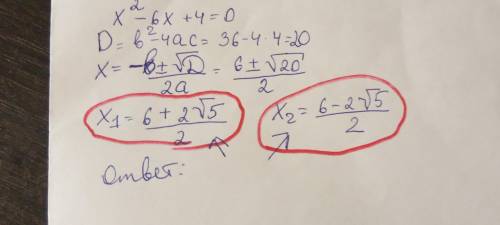 x² - 6x + 4 = 0
D = b² - 4ac = 36 - 4·4 = 20
x = (-b ± √D)/2a = (6 ± √20)/2
x₁ = (6 + 2√5)/2 x₂ = (6 - 2√5)/2
Ответ: